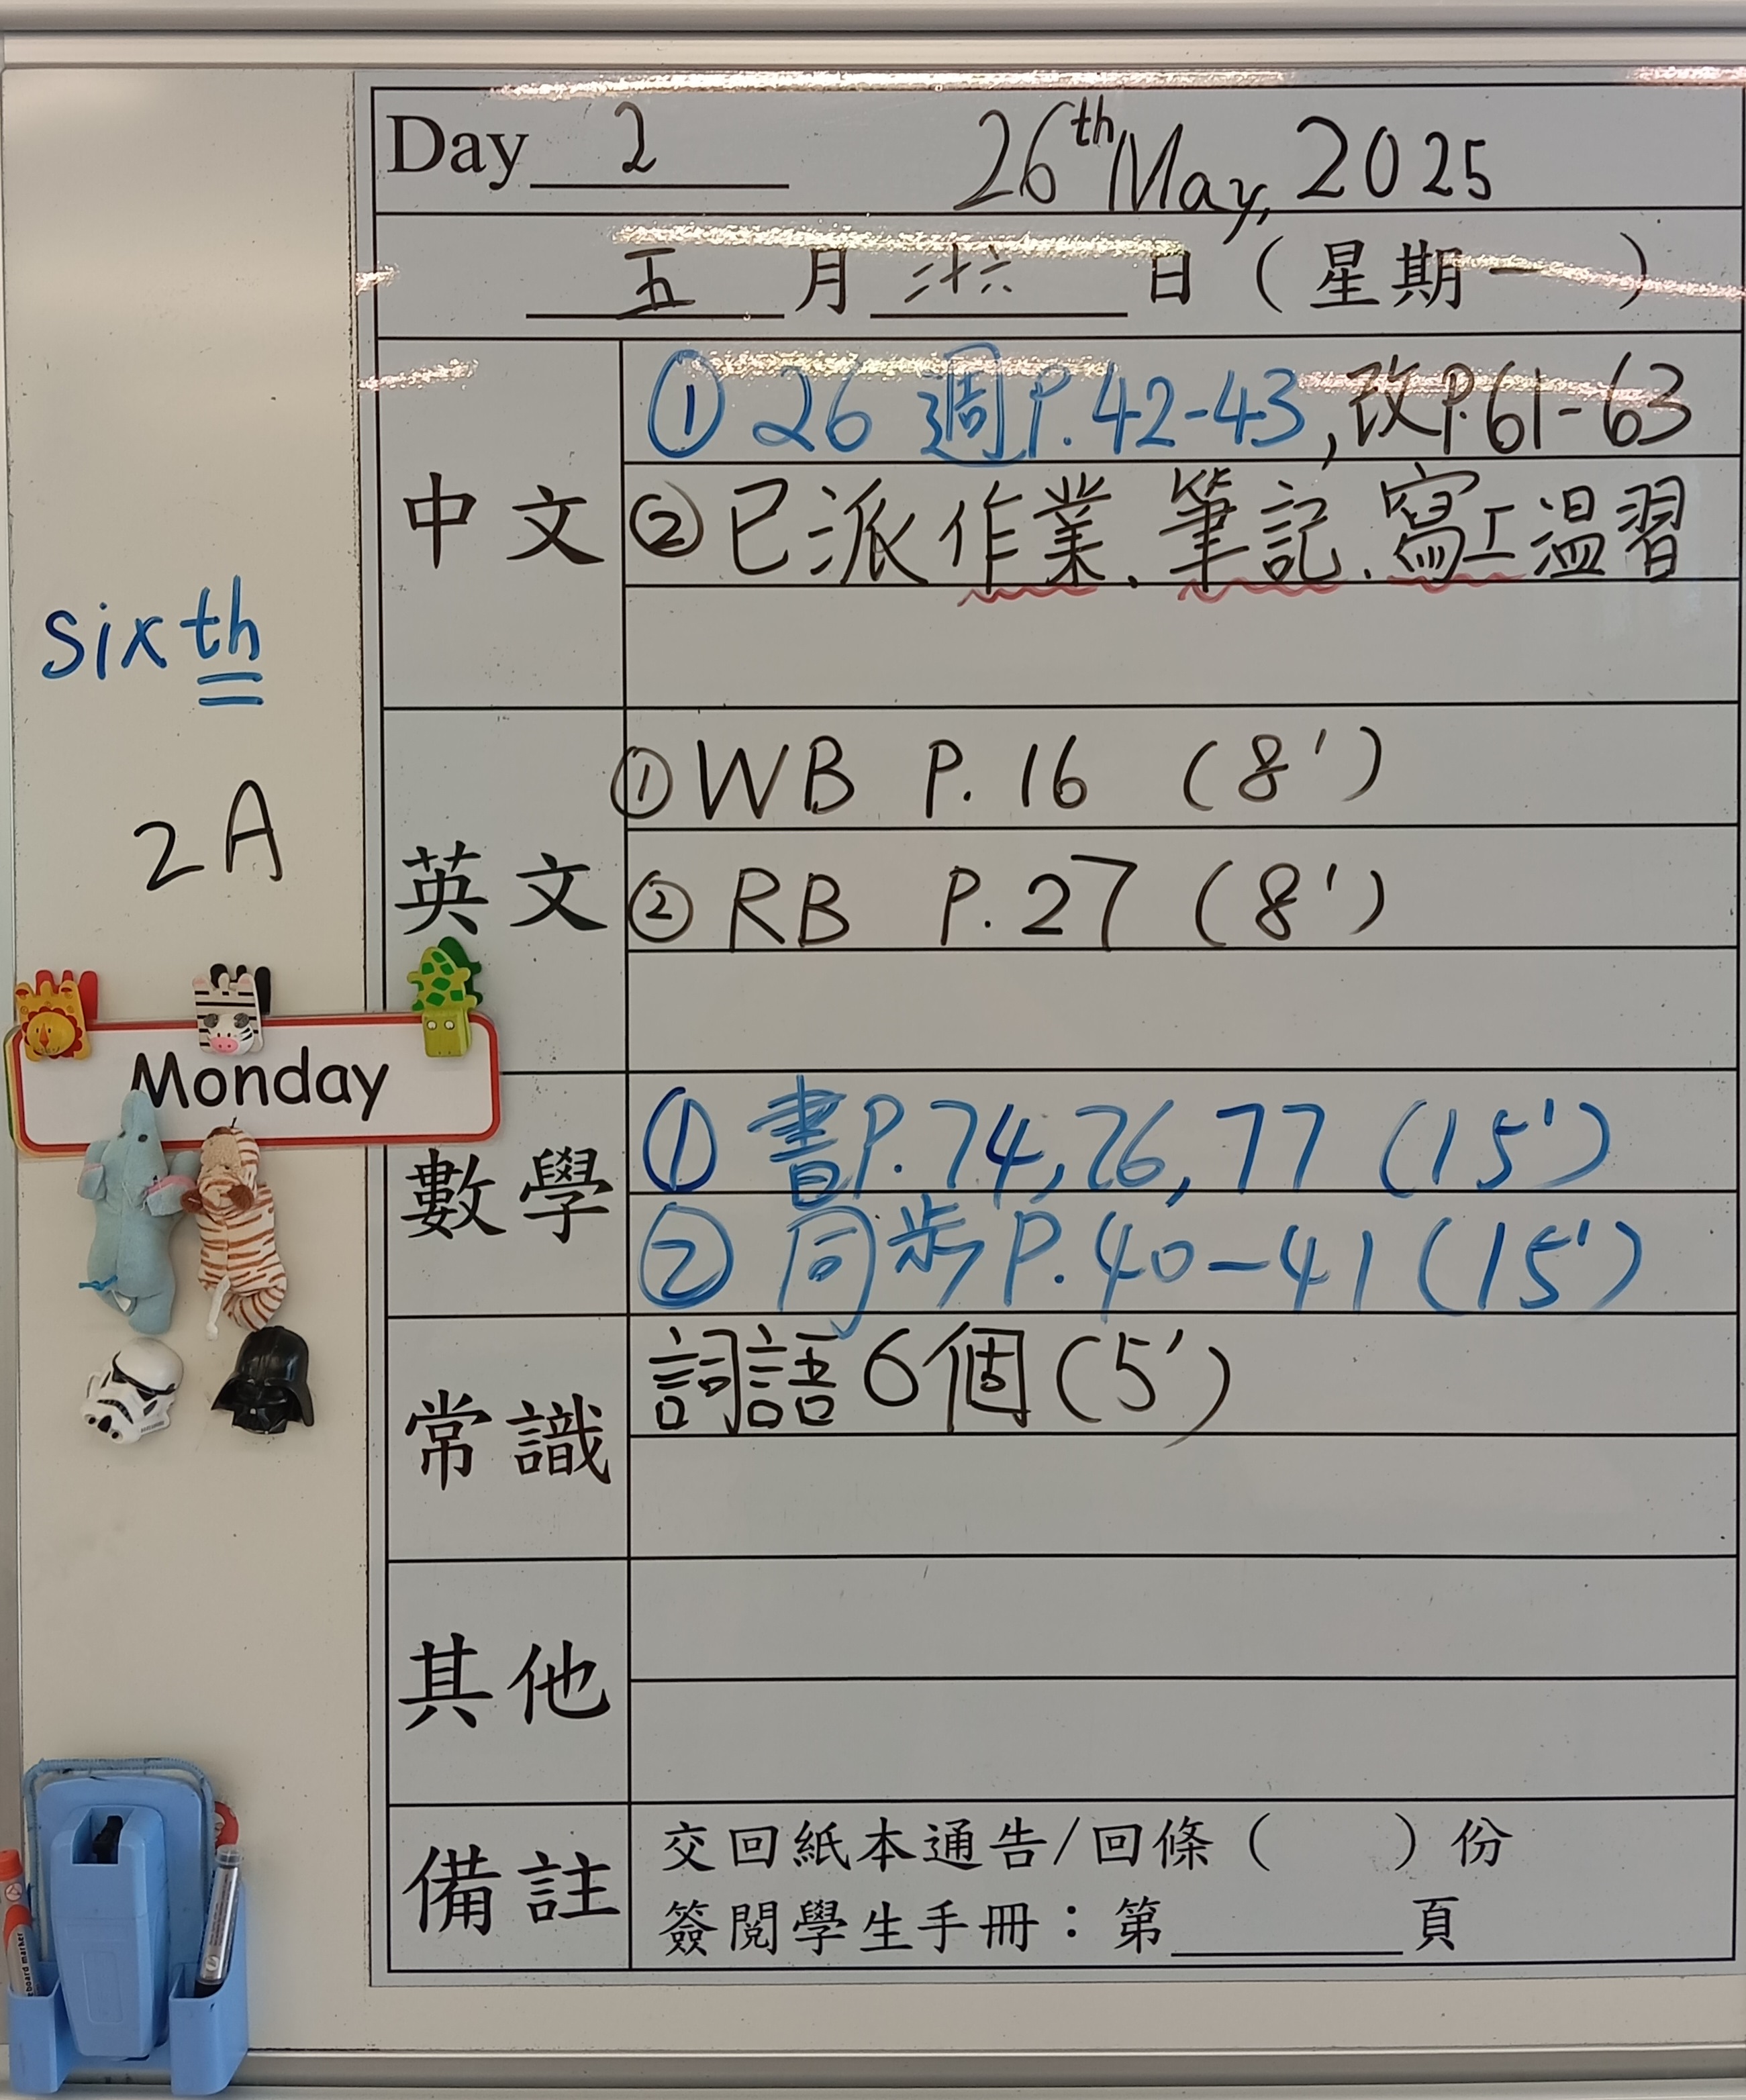 Day 2 26th May, 2025
五 月 二十六 日（星期一 ）
中文
① 26 週P.42-43, 改P.61-63
② 已派作業、筆記、寫工溫習
sixth
2A
英文
① WB P.16 (8')
② RB P.27 (8')
Monday
數學
① 書P.74, 76, 77 (15')
② 同步P.40-41 (15')
常識
詞語6個(5')
其他
備註
交回紙本通告/回條（ ）份
簽閱學生手冊：第 頁